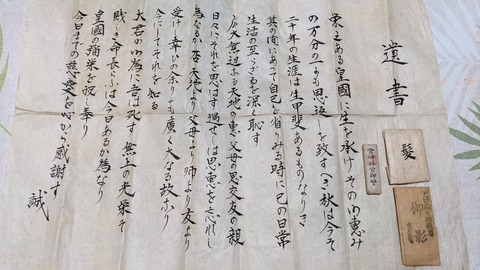 遺書
栄ある皇國に生を承けその御恵み
の万分の一にも思返しを致すべき秋は今ぞ
二十年の生涯は生甲斐あるものなりき
其の間にあって自己を省りみる時に己の日常
生活の至らざるを深く恥す
広大無辺なる天地の恵、父母の恩、交友の親
日々にそれを思はず過せしは恩恵を忘れし
為なるか 否 天地より父母より師より友より
受けし幸ひの余りにも廣く大なる故なり
今にしてそれを知る
大君の御為に吾は死す 無上の光栄ぞ
賎しき命長らふは今日あるか為なり
皇國の弥栄を祝し奉り
今日までの慈愛を心から感謝す
誠
髪
御影